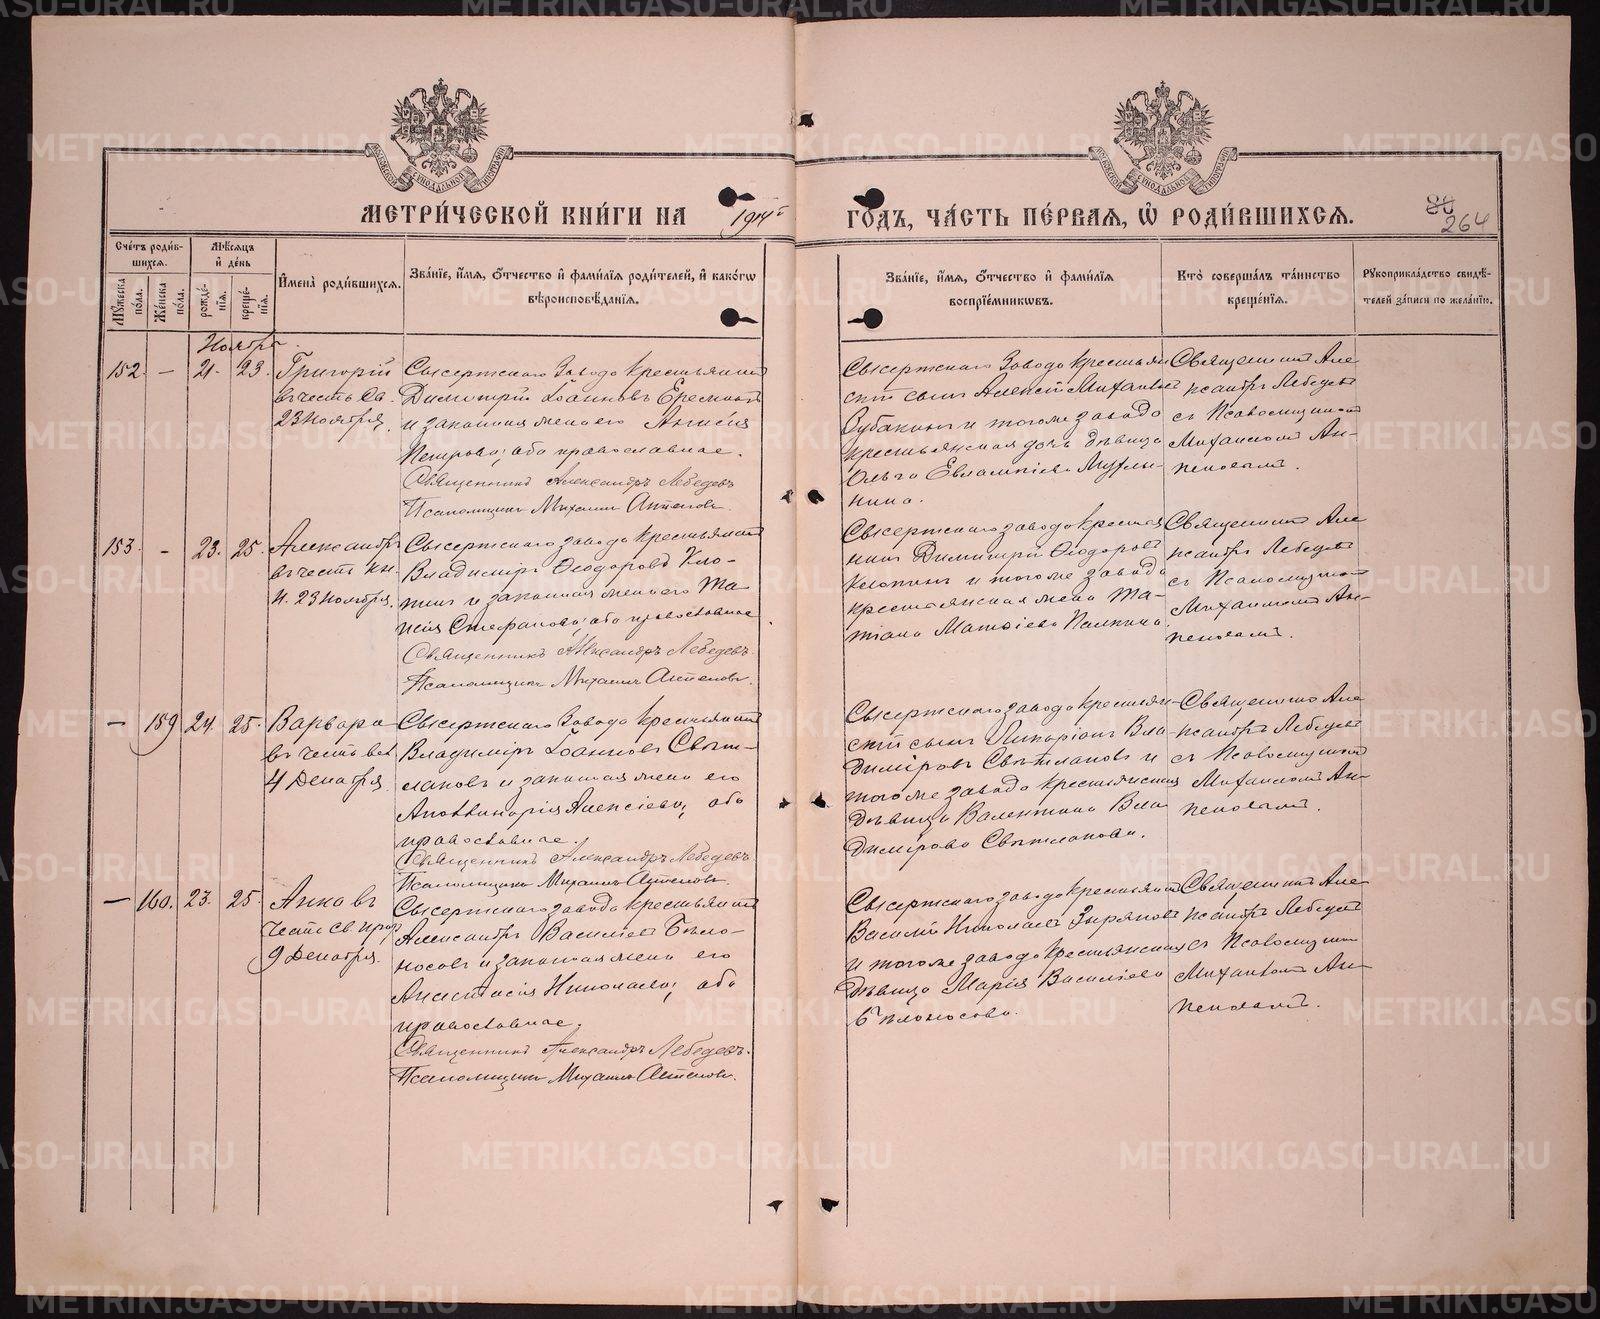 МЕТРИ́ЧЕСКОЙ КНИ́ГИ НА 1914 г
ГО́ДЪ, ЧА́СТЬ ПЕ́РВАЯ, Ѡ҆ РОДИ́ВШИХСЯ.
264
Сче́тъ роди́вшихся.
Мѣ́сяцъ и҆ де́нь
Мꙋ́жеска по́ла.
Же́нска по́ла.
рожде́нїя.
креще́нїя.
И҆мена̀ роди́вшихся.
Зва́нїе, и҆́мя, ѻ҆́тчество и҆ фами́лїя роди́телей, и҆ како́гѡ
вѣроисповѣ́данїя.
Зва́нїе, и҆́мя, ѻ҆́тчество и҆ фами́лїя
воспрїе́мникѡвъ.
Кто̀ соверша́лъ та́инство
креще́нїя.
Рꙋкоприкла́дство свидѣ́-
телей за́писи по жела́нїю.
Ноябрь.
152. – 21. 23.
Григорій
въ честь Св.
23 Ноября.
Сысертскаго Завода крестьянинъ
Димитрій Іоанновъ Ереминъ
и законная жена его
Петрова; оба православные.
Священникъ Александръ Лебедевъ
Псаломщикъ Михаилъ Антеповъ.
Сысертскаго Завода крестьян
скій сынъ Алексій Михаиловъ
Зубакинъ и того же завода
крестьянская дочь дѣвица
Ольга Евлампіева
нина.
Священникъ Але
ксандръ Лебедевъ
съ Псаломщикомъ
Михаиломъ Ан-
теповымъ.
153. – 23. 25.
Александръ
въ честь кн.
н. 23 Ноября.
Сысертскаго завода крестьянинъ
Владиміръ Ѳеодоровъ Кло-
пинъ и законная жена его Та-
исія Стефанова; оба православные
Священникъ Александръ Лебедевъ.
Псаломщикъ Михаилъ Антеповъ.
Сысертскаго завода крестья
нинъ Димитрій Ѳеодоровъ
Клопинъ и того же завода
крестьянская жена Та-
тіана Матѳіева Палкина.
Священникъ Але
ксандръ Лебедевъ
съ Псаломщикомъ
Михаиломъ Ан-
теповымъ.
– 159 24. 25.
Варвара
въ честь вел
4 Декабря.
Сысертскаго Завода крестьянинъ
Владиміръ Іоанновъ Свѣт-
лаковъ и законная жена его
Аполлинарія Алексіева; оба
православные.
Священникъ Александръ Лебедевъ
Псаломщикъ Михаилъ Антеповъ.
Сысертскаго завода крестьян-
скій сынъ Вла-
диміровъ Свѣтлаковъ и
того же завода крестьянская
дѣвица Валентина Вла
димірова Свѣтлакова.
Священникъ Але
ксандръ Лебедевъ
съ Псаломщикомъ
Михаиломъ Ан-
теповымъ.
– 160. 23. 25.
Анна въ
честь св. прор
9 Декабря.
Сысертскаго завода крестьянинъ
Александръ Василіевъ Бѣло-
носовъ и законная жена его
Анастасія Николаева; оба
православные.
Священникъ Александръ Лебедевъ.
Псаломщикъ Михаилъ Антеповъ.
Сысертскаго завода крестьянинъ
Василій Николаевъ Зыряновъ
и того же завода крестьянская
дѣвица Марія Василіева
Бѣлоносова.
Священникъ Але
ксандръ Лебедевъ
съ Псаломщикомъ
Михаиломъ Ан-
теповымъ.
METRIKI.GASO-URAL.RU